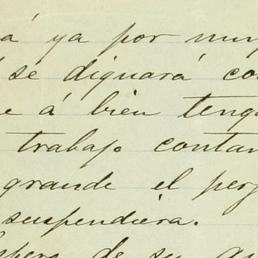 á ya por muy
se dignará con
e á bien tenga
trabajo contan
grande el perj
suspendiera.
de su